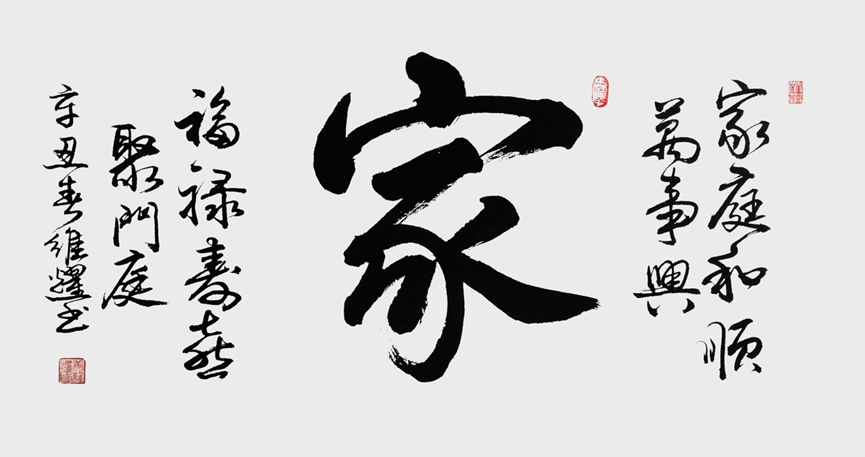 家庭和順
萬事興
家
福禄壽喜
聚門庭
辛丑春維耀书